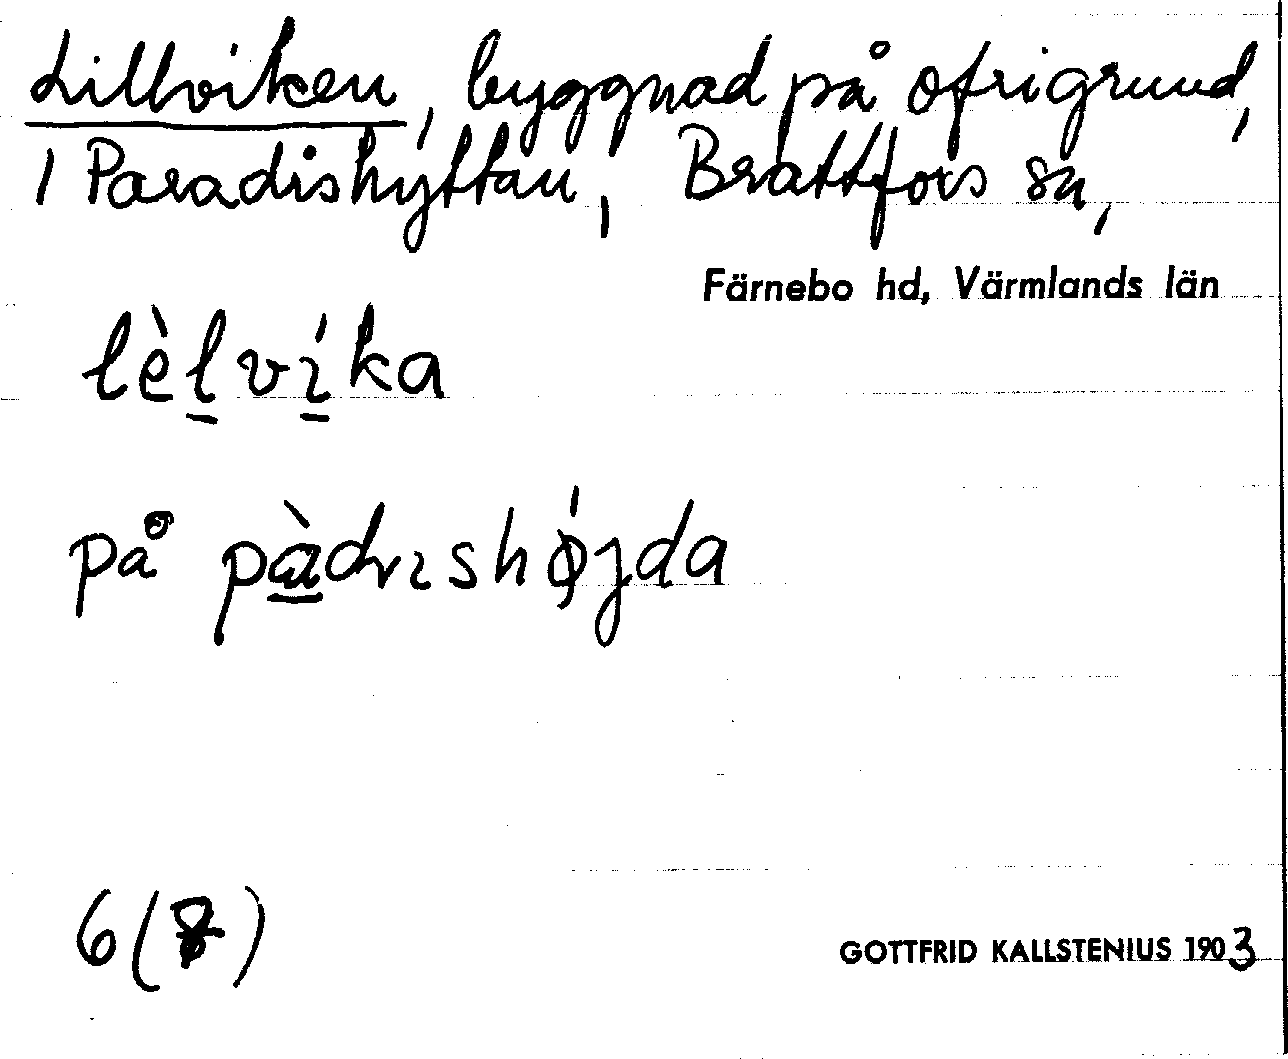 Lillviken, byggnad på ofrigrund,
1 Paradishyttan, Brattfors sn,
Färnebo hd, Värmlands län
lèlvíka
på pàdrɩshǿjda
6 (8)
GOTTFRID KALLSTENIUS 1903